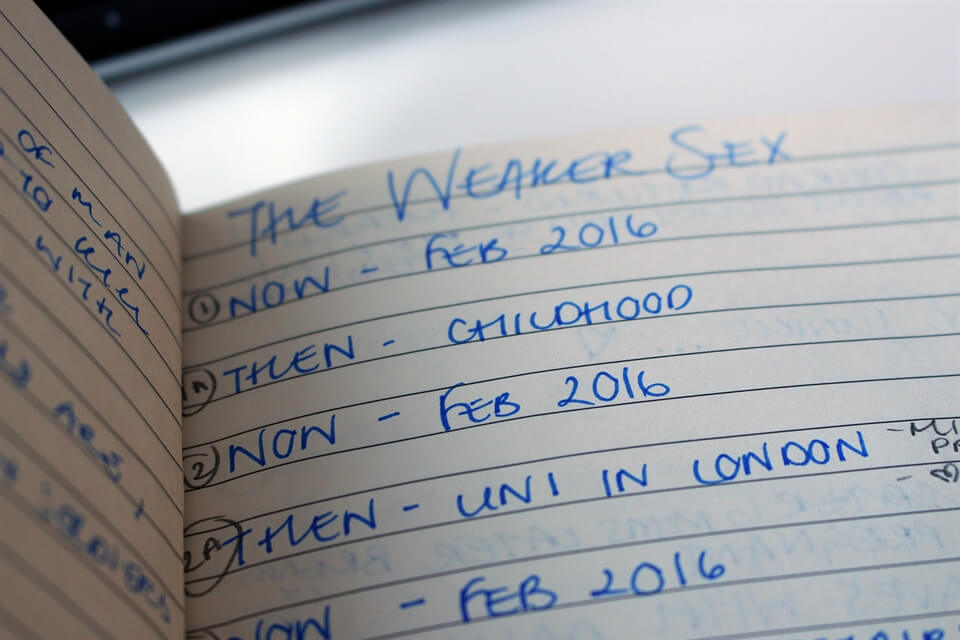 OF MAN
TO
WITH
THE WEAKER SEX
① NOW - FEB 2016
THEN - CHILDHOOD
② NOW - FEB 2016
2A THEN - UNI IN LONDON -
NOW - FEB 2016